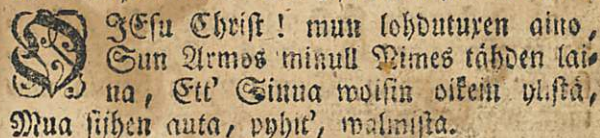 O JEsu Christ! mun lohdutuxen aino,
Sun Armos minull Nimes tähden lai-
na, Ett' Sinua woisin oikein ylistä,
Mua sijhen auta, pyhit', walmista.